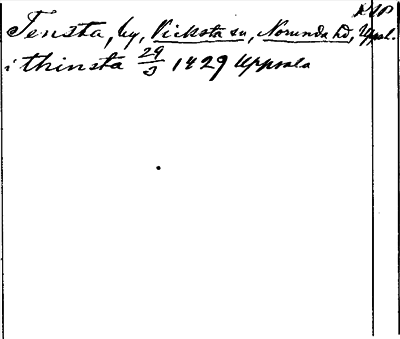 Tensta, by, Vicksta sn, Norunda hd, Uppl.
i thinsta 29/3 1429 Uppsala